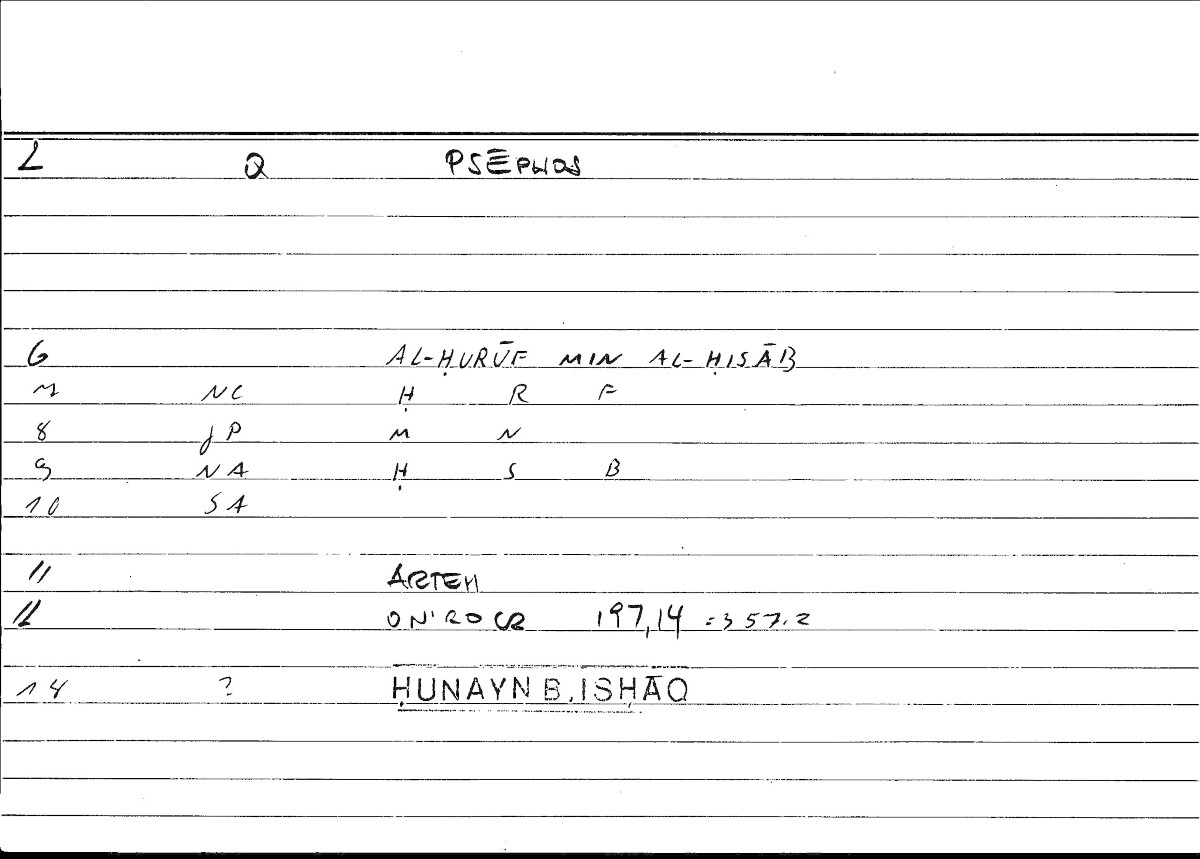 2 Q PSĒPHOS
6 AL-ḤURŪF MIN AL-ḤISĀB
7 NC Ḥ R F
8 JP M N
9 NA Ḥ S B
10 SA
11 ARTEM
12 ONIROCR 197,14 = 357.2
14 ? ḤUNAYN B. ISḤĀQ